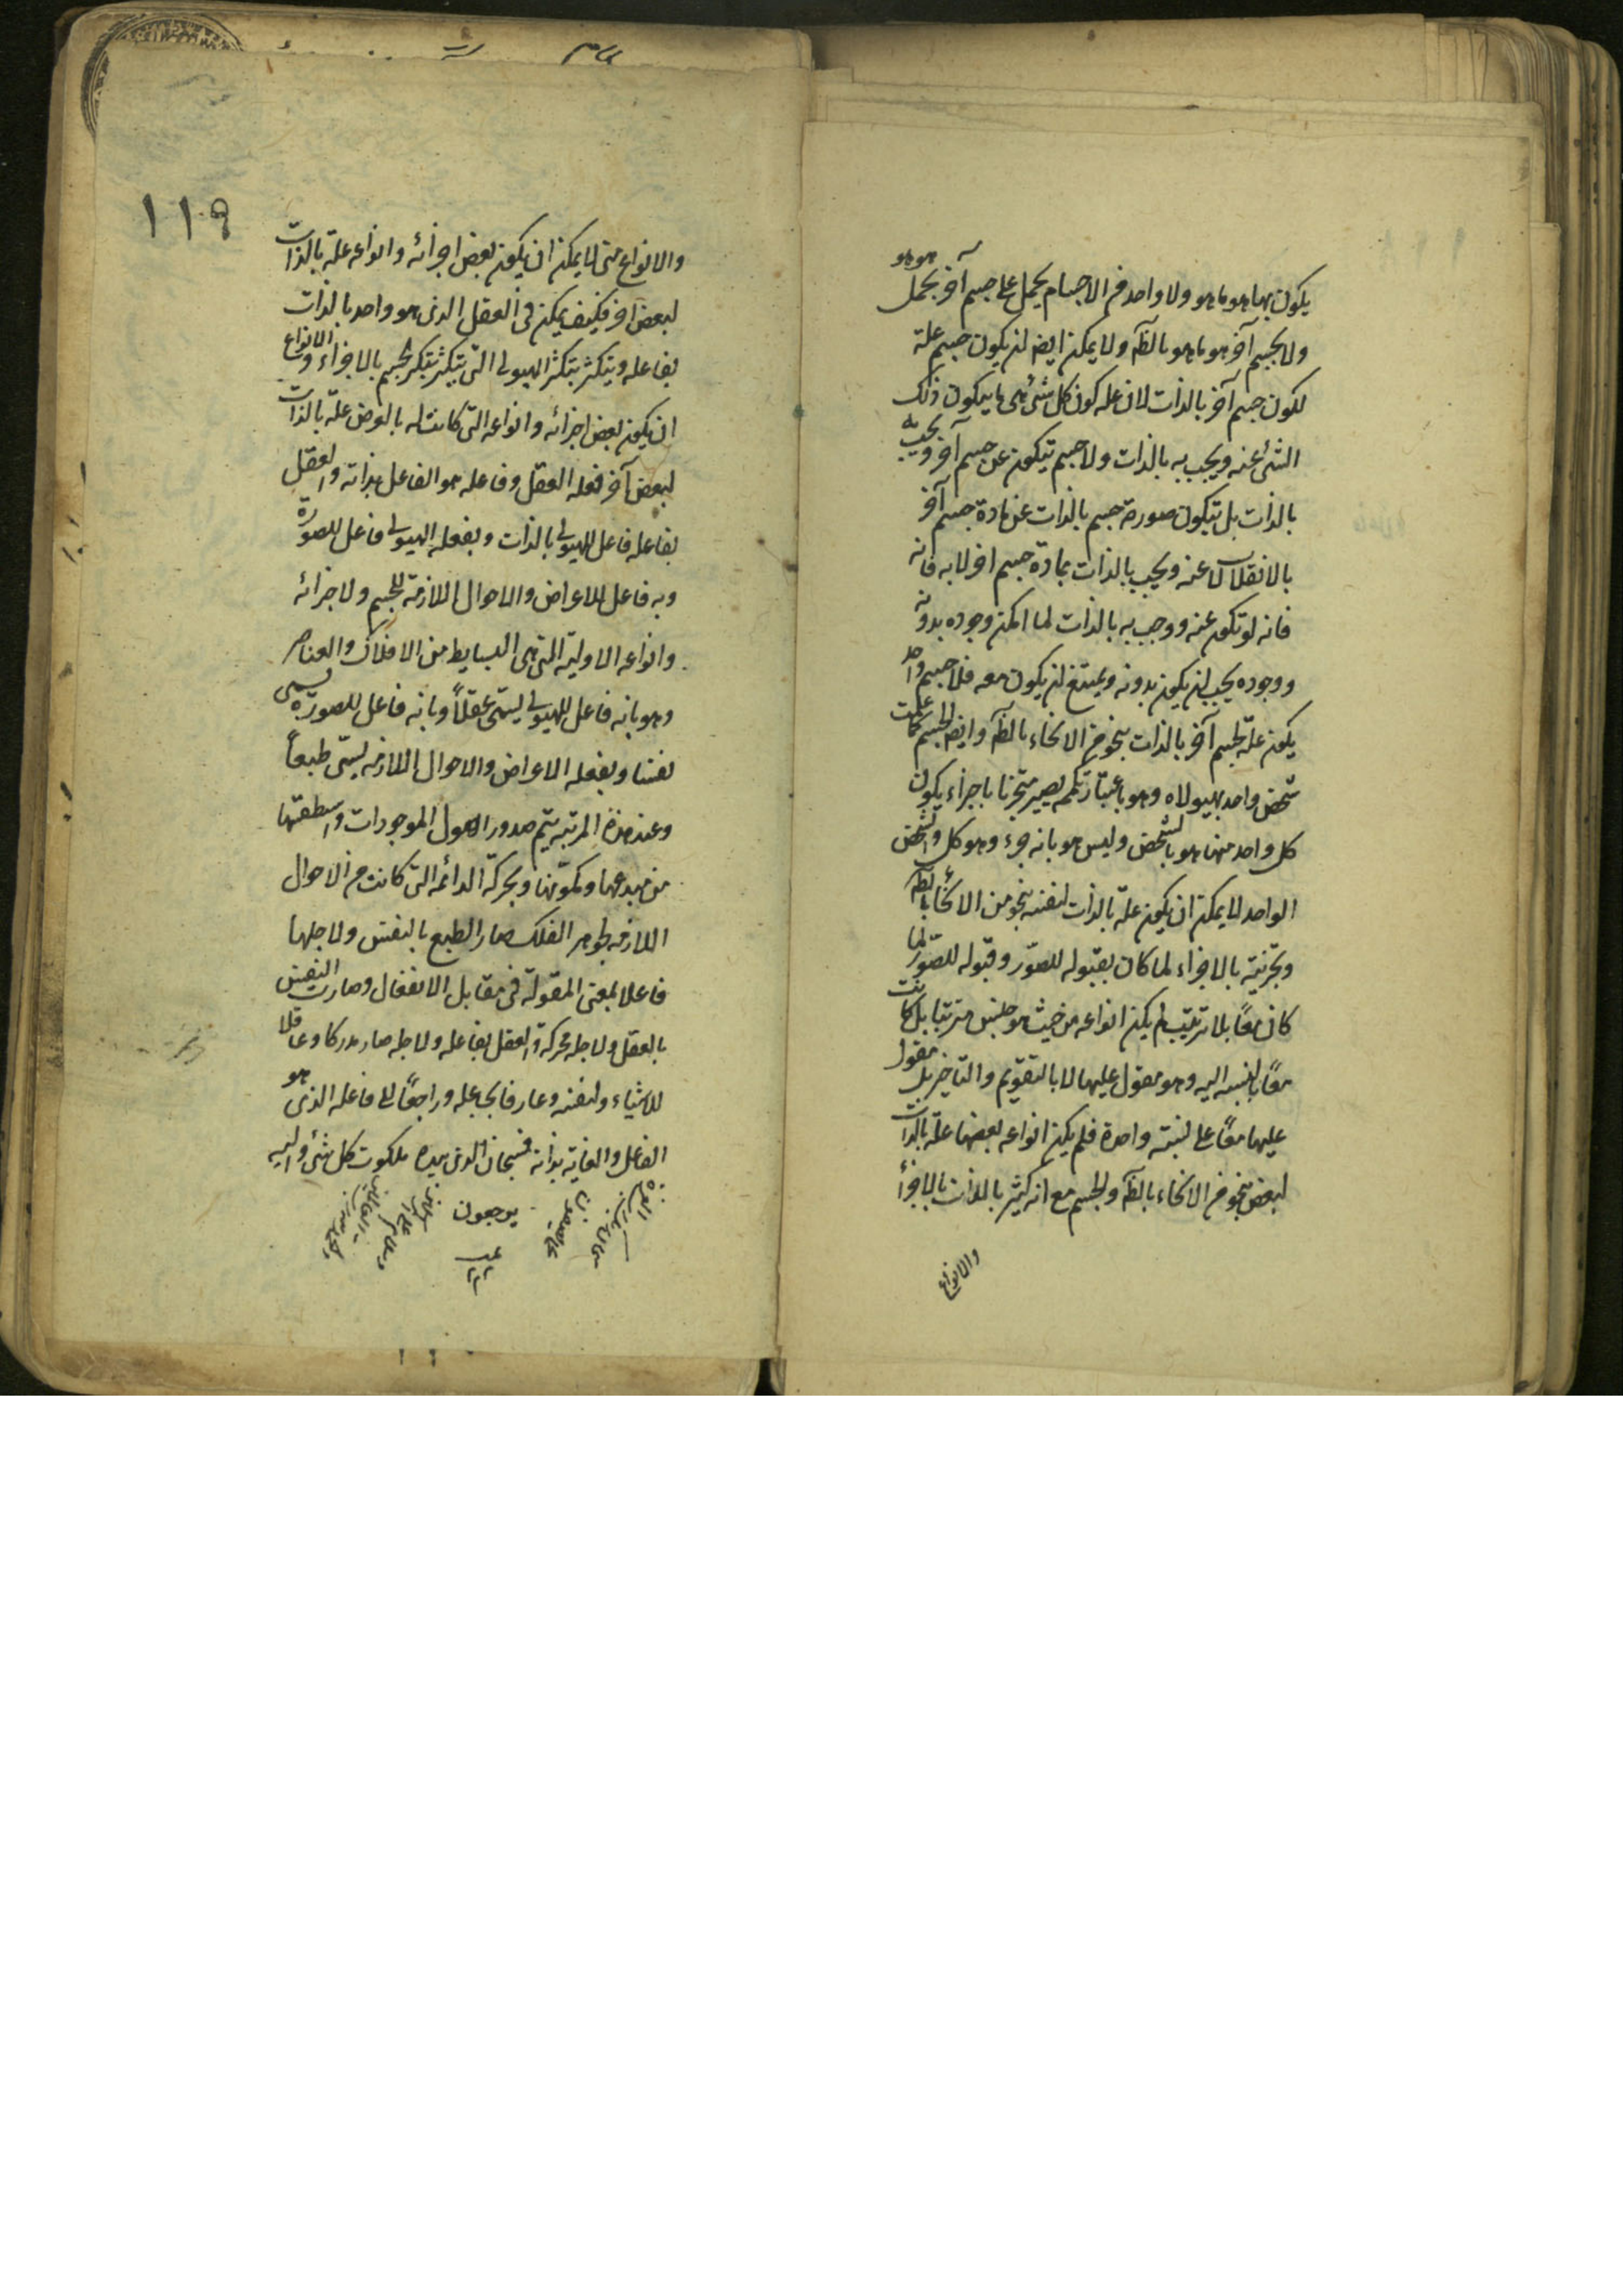 يكون بها هو ما هو ولا واحد من الاجسام يحمل على جسم آخر بحمل هو هو
ولا بجسم آخر هو ما هو بالذات ولا يمكن ايضا ان يكون جسم علة
لكون جسم آخر بالذات لان علة كون كل شئ هى ما يتكون ذلك
الشئ عنه ويجب به بالذات ولا جسم يتكون عن جسم آخر ويجب به
بالذات بل تتكون صورة جسم بالذات عن مادة جسم آخر
بالانقلاب لا عنه ويجب بالذات بمادة جسم اخر لا به فانه
فانه لو تكون عنه ووجب به بالذات لما امكن وجوده بدونه
ووجوده يجب ان يكون بدونه ويمتنع ان يكون معه فلا جسم واحد
يكون علة لجسم آخر بالذات بنحو من الانحاء وايضا الجسم كما علمت
شخص واحد بهيولاه وهو باعتبار تكممه يصير متجزئا باجزاء يكون
كل واحد منها هو بالشخص وليس هو بانه جزء وهو كل والشخص
الواحد لا يمكن ان يكون علة بالذات لنفسه بنحو من الانحاء
وتجزئته بالاجزاء لما كان بقبوله للصور وقبوله للصور لما
كان معا بلا ترتيب لم يكن انواعه من حيث هو جنس مترتبا بل كانت
معا بالنسبة اليه وهو مقول عليها لا بالتقديم والتاخير بل مقول
عليها معا على نسبة واحدة فلم يكن انواعه بعضها علة بالذات
لبعض بنحو من الانحاء والجسم مع انه كثير بالذات بالاجزاء
والانواع
١١٩
والانواع متى لا يمكن ان يكون بعض اجزائه وانواعه علة بالذات
لبعض اخر فكيف يمكن فى العقل الذى هو واحد بالذات
بفاعله ويتكثر بتكثر الهيولى التى يتكثر بتكثر الجسم بالاجزاء والانواع
ان يكون بعض اجزائه وانواعه التى كانت له بالعرض علة بالذات
لبعض آخر فعله العقل وفاعله هو الفاعل بذاته والعقل
بفاعله فاعل للهيولى بالذات وبفعله الهيولى فاعل للصورة
وبه فاعل للاعراض والاحوال اللازمة للجسم ولاجزائه
وانواعه الاولية التى هى البسايط من الافلاك والعناصر
وهو بانه فاعل للهيولى يسمى عقلاً وبانه فاعل للصورة يسمى
نفسا وبفعله الاعراض والاحوال اللازمه يسمى طبعاً
وعند هذه المرتبة يتم صدور اصول الموجودات واسطقتها
من مبدعها ومكونها وبحركة الدائمه التى كانت من الاحوال
اللازمه لجوهر الفلك صار الطبع بالنفس ولاجلها
فاعلا بمعنى المقولة فى مقابل الانفعال وصارت النفس
بالعقل ولاجله محركة والعقل بفاعله ولاجله صار مدركا وعاقلا
للاشياء ولنفسه وعارفا بجاعله وراجعاً الى فاعله الذى هو
الفاعل والغاية بذاته فسبحان الذى بيده ملكوت كل شئ واليه
يرجعون